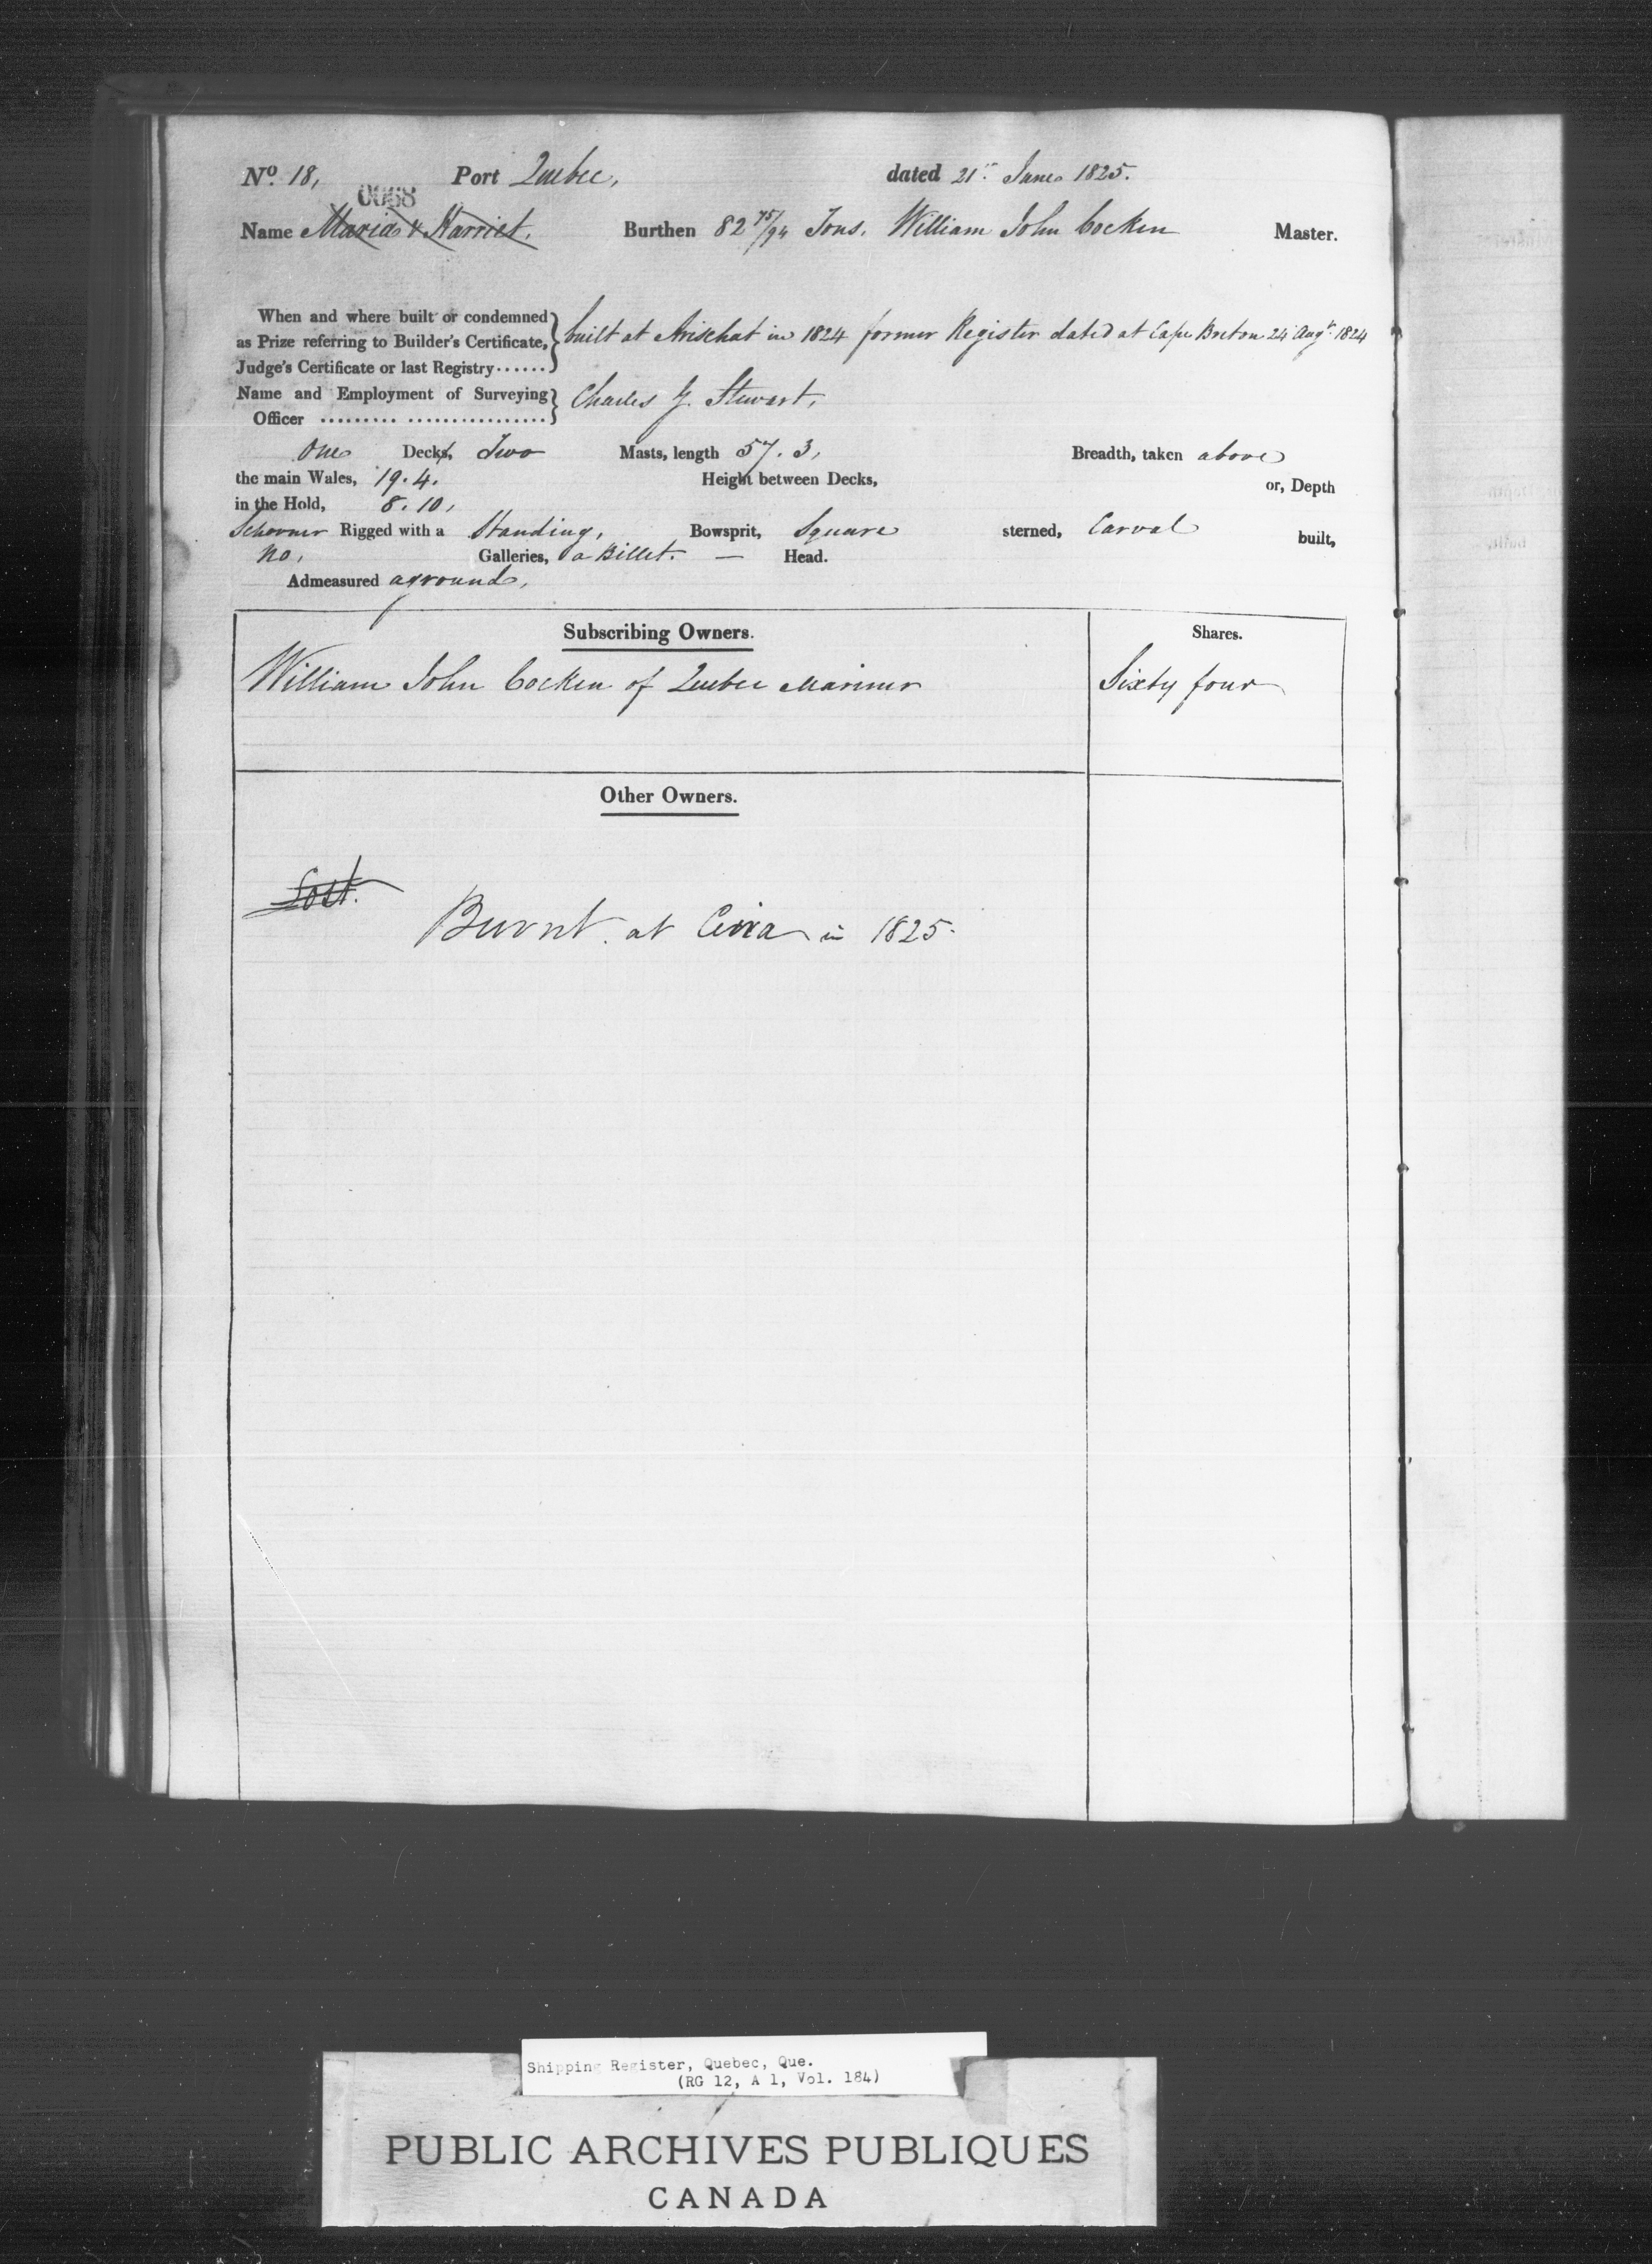 No. 18, Port Quebec, dated 21st June 1825.
0068
Name Maria & Harriet. Burthen 82 75/94 Tons. William John Cocken Master.
When and where built or condemned
as Prize referring to Builder's Certificate, built at Arischat in 1824 former Register dated at Cape Breton 24 Augt. 1824
Judge's Certificate or last Registry......
Name and Employment of Surveying Charles G. Stewart,
Officer ......... ................
One Decks, Two Masts, length 57. 3, Breadth, taken above
the main Wales, 19. 4. Height between Decks, or, Depth
in the Hold, 8. 10,
Schooner Rigged with a Standing, Bowsprit, Square sterned, Carval built,
no, Galleries, a Billet. — Head.
Admeasured aground,
Subscribing Owners. Shares.
William John Cocken of Quebec Mariner Sixty four
Other Owners.
Lost.
Burnt at in 1825.
Shipping Register, Quebec, Que.
(RG 12, A 1, Vol. 184)
PUBLIC ARCHIVES PUBLIQUES
CANADA